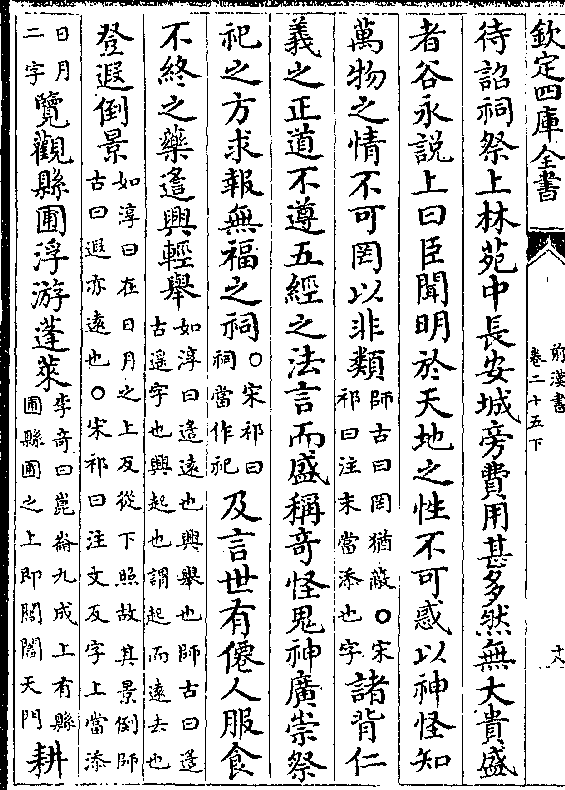 欽定四庫全書
前漢書
卷二十五下
十八
待詔祠祭上林苑中長安城旁費用甚多然無大貴盛
者谷永說上曰臣聞明於天地之性不可惑以神怪知
萬物之情不可罔以非類師古曰罔猶蔽〇宋祁曰注末當添也字諸背仁
義之正道不遵五經之法言而盛稱奇怪鬼神廣崇祭
祀之方求報無福之祠〇宋祁曰祠當作祀及言世有僊人服食
不終之藥遙興輕舉如淳曰遙遠也興舉也師古曰遙古遥字也興起也謂起而遠去也
登遐倒景如淳曰在日月之上反從下照故其景倒師古曰遐亦遠也〇宋祁曰注文反字上當添
日月二字覽觀縣圃浮游蓬萊李奇曰崑崙九成上有縣圃縣圃之上即閶闔天門耕